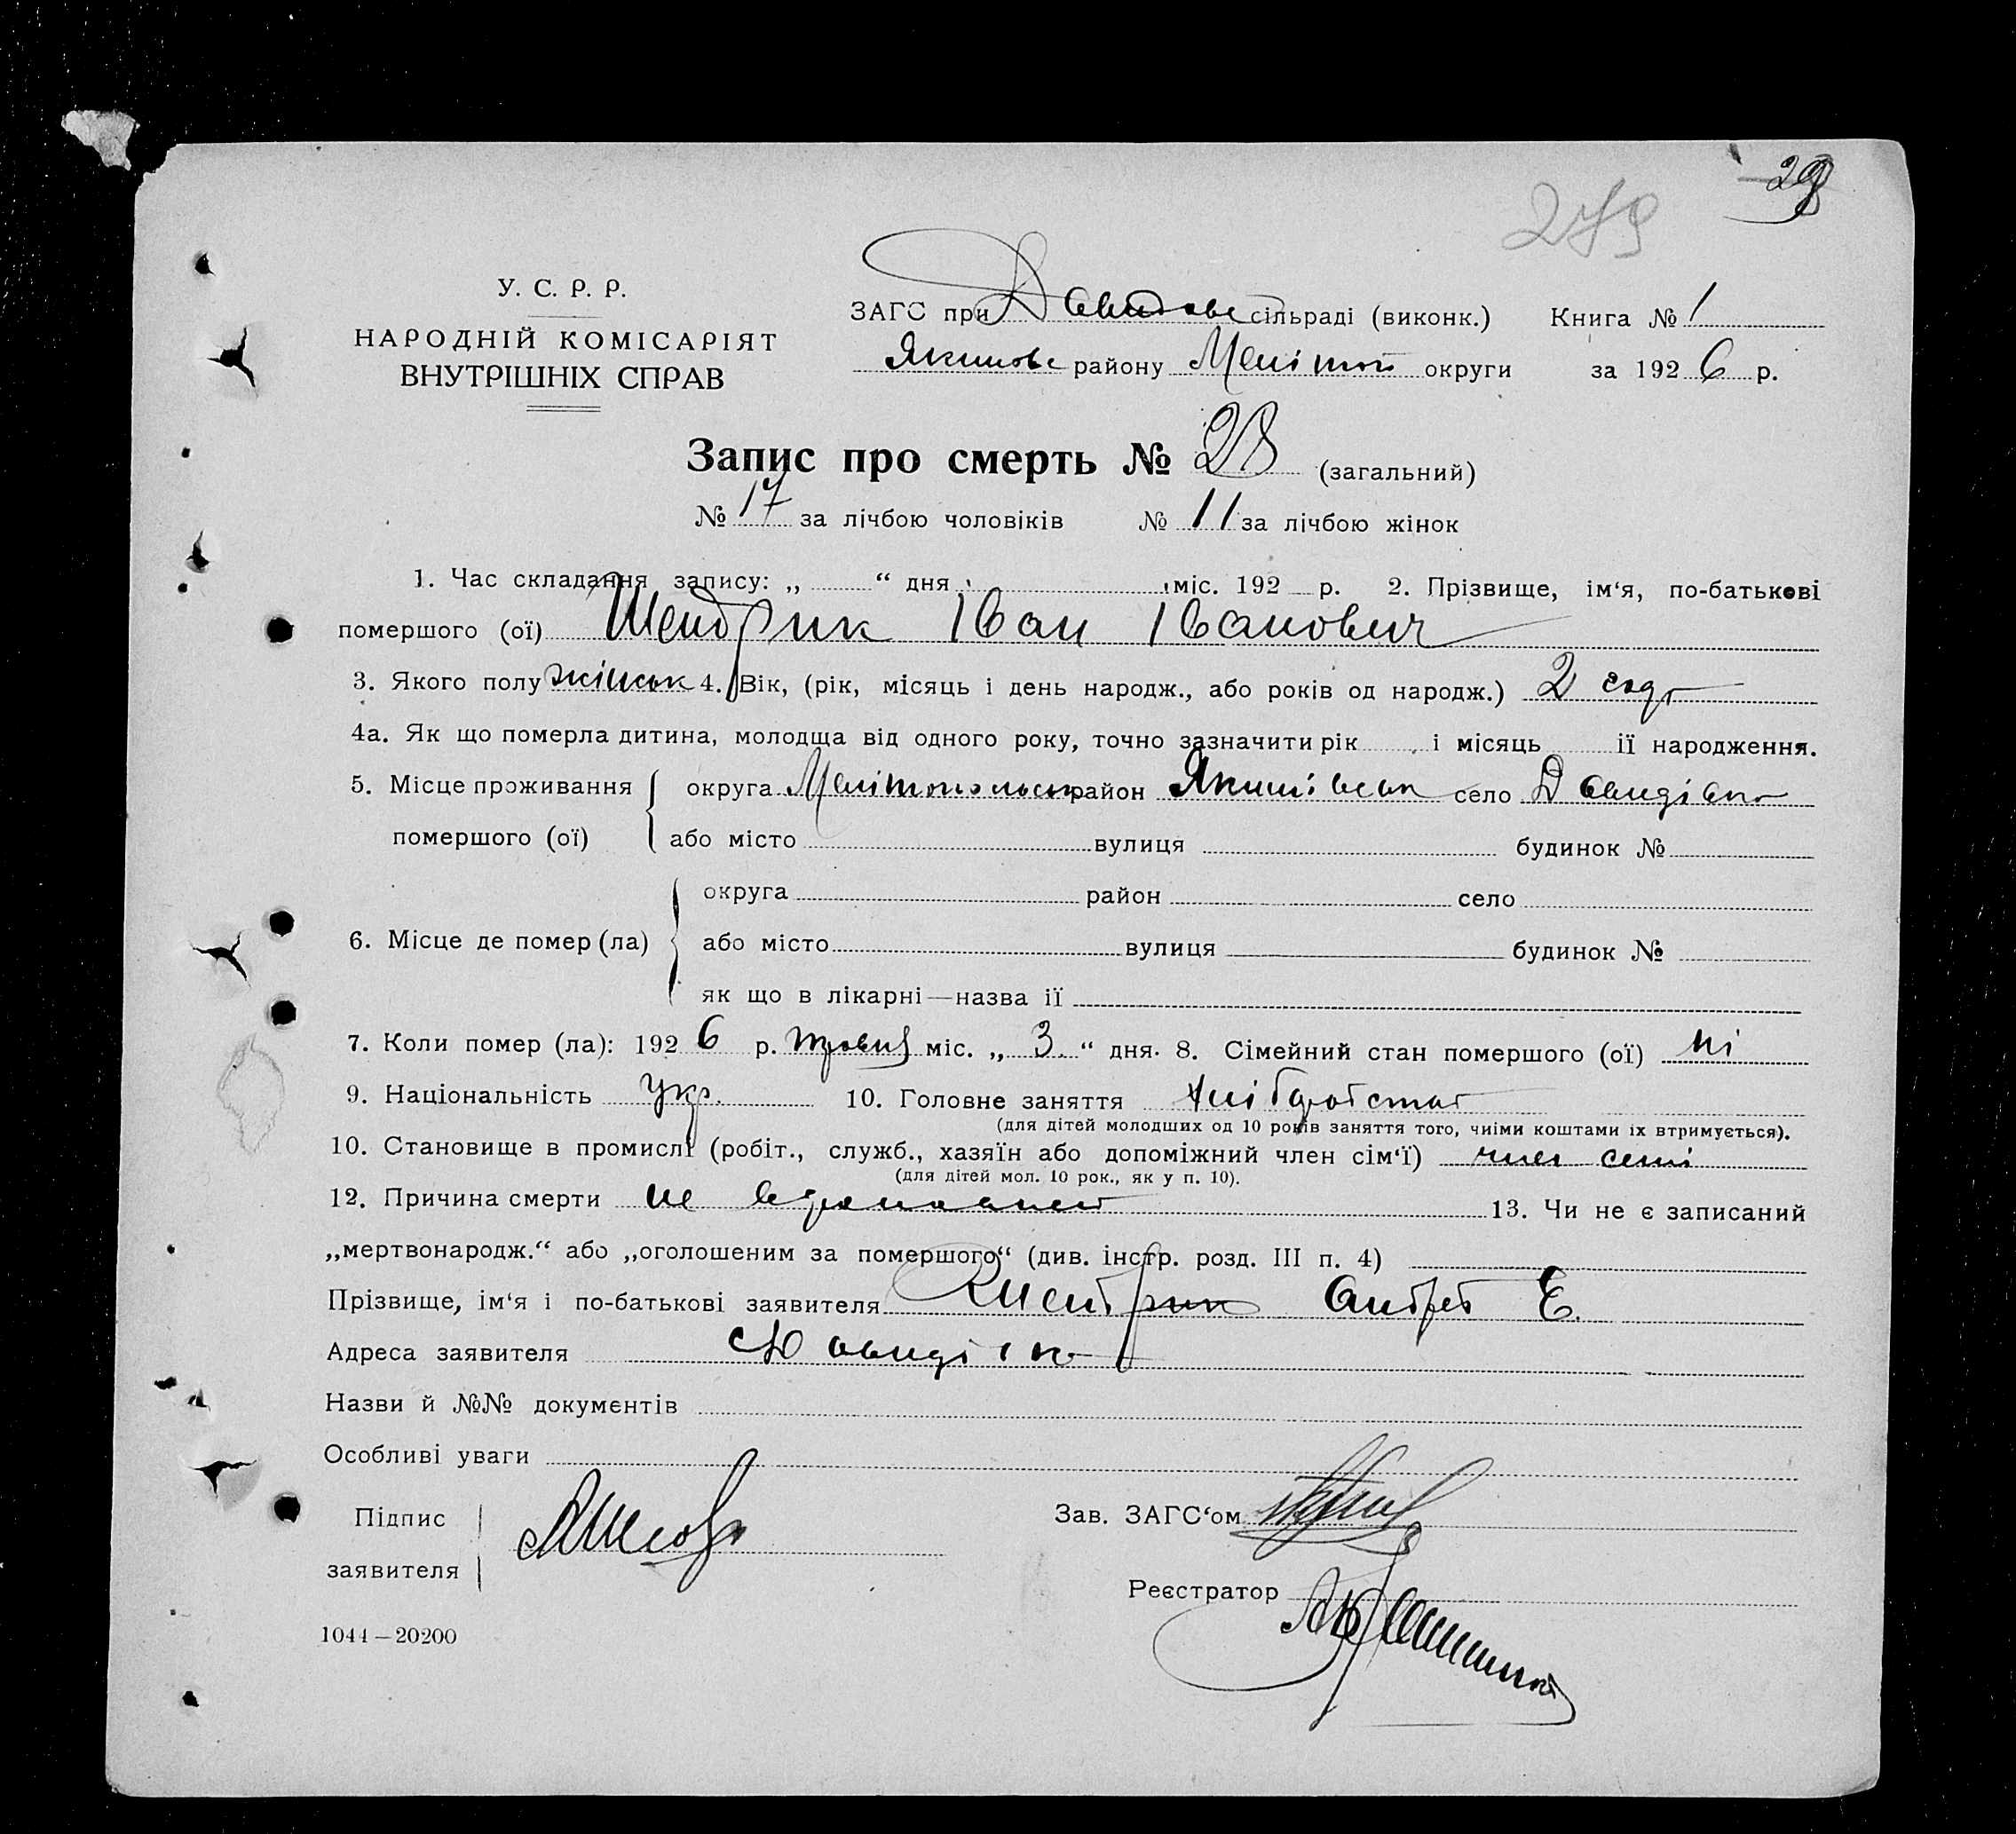 28
279
У. С. Р. Р.
НАРОДНІЙ КОМІСАРІЯТ
ВНУТРІШНІХ СПРАВ
ЗАГС при Давидове сільраді (виконк.) Книга № 1
Якимове району Меліт округи за 1926 р.
Запис про смерть № 28 (загальний)
№ 17 за лічбою чоловіків № 11 за лічбою жінок
1. Час складання запису: „ “ дня міс. 192 р. 2. Прізвище, ім‘я, по-батькові
помершого (ої) Шендрик Іван Іванович
3. Якого полу жінськ 4. Вік, (рік, місяць і день народж., або років од народж.) 2 году
4а. Як що померла дитина, молодща від одного року, точно зазначити рік і місяць ії народження.
5. Місце проживання округа Мелітопольськ район Якимівськ село Давидівка
помершого (ої) або місто вулиця будинок №
округа район село
6. Місце де помер (ла) або місто вулиця будинок №
як що в лікарні—назва ії
7. Коли помер (ла): 1926 р. міс. „ 3 “ дня. 8. Сімейний стан помершого (ої) ні
9. Національність укр. 10. Головне заняття хліборобство
(для дітей молодших од 10 років заняття того, чиіми коштами іх втримується).
10. Становище в промислі (робіт., служб., хазяїн або допоміжний член сім‘ї) член семі
(для дітей мол. 10 рок., як у п. 10).
12. Причина смерти не 13. Чи не є записаний
„мертвонародж.“ або „оголошеним за помершого“ (див. інстр. розд. III п. 4)
Прізвище, ім‘я і по-батькові заявителя Шендрик Андрей Е.
Адреса заявителя Давидівка
Назви й №№ документів
Особливі уваги
Підпис Зав. ЗАГС‘ом
заявителя
Реєстратор
1044—20200